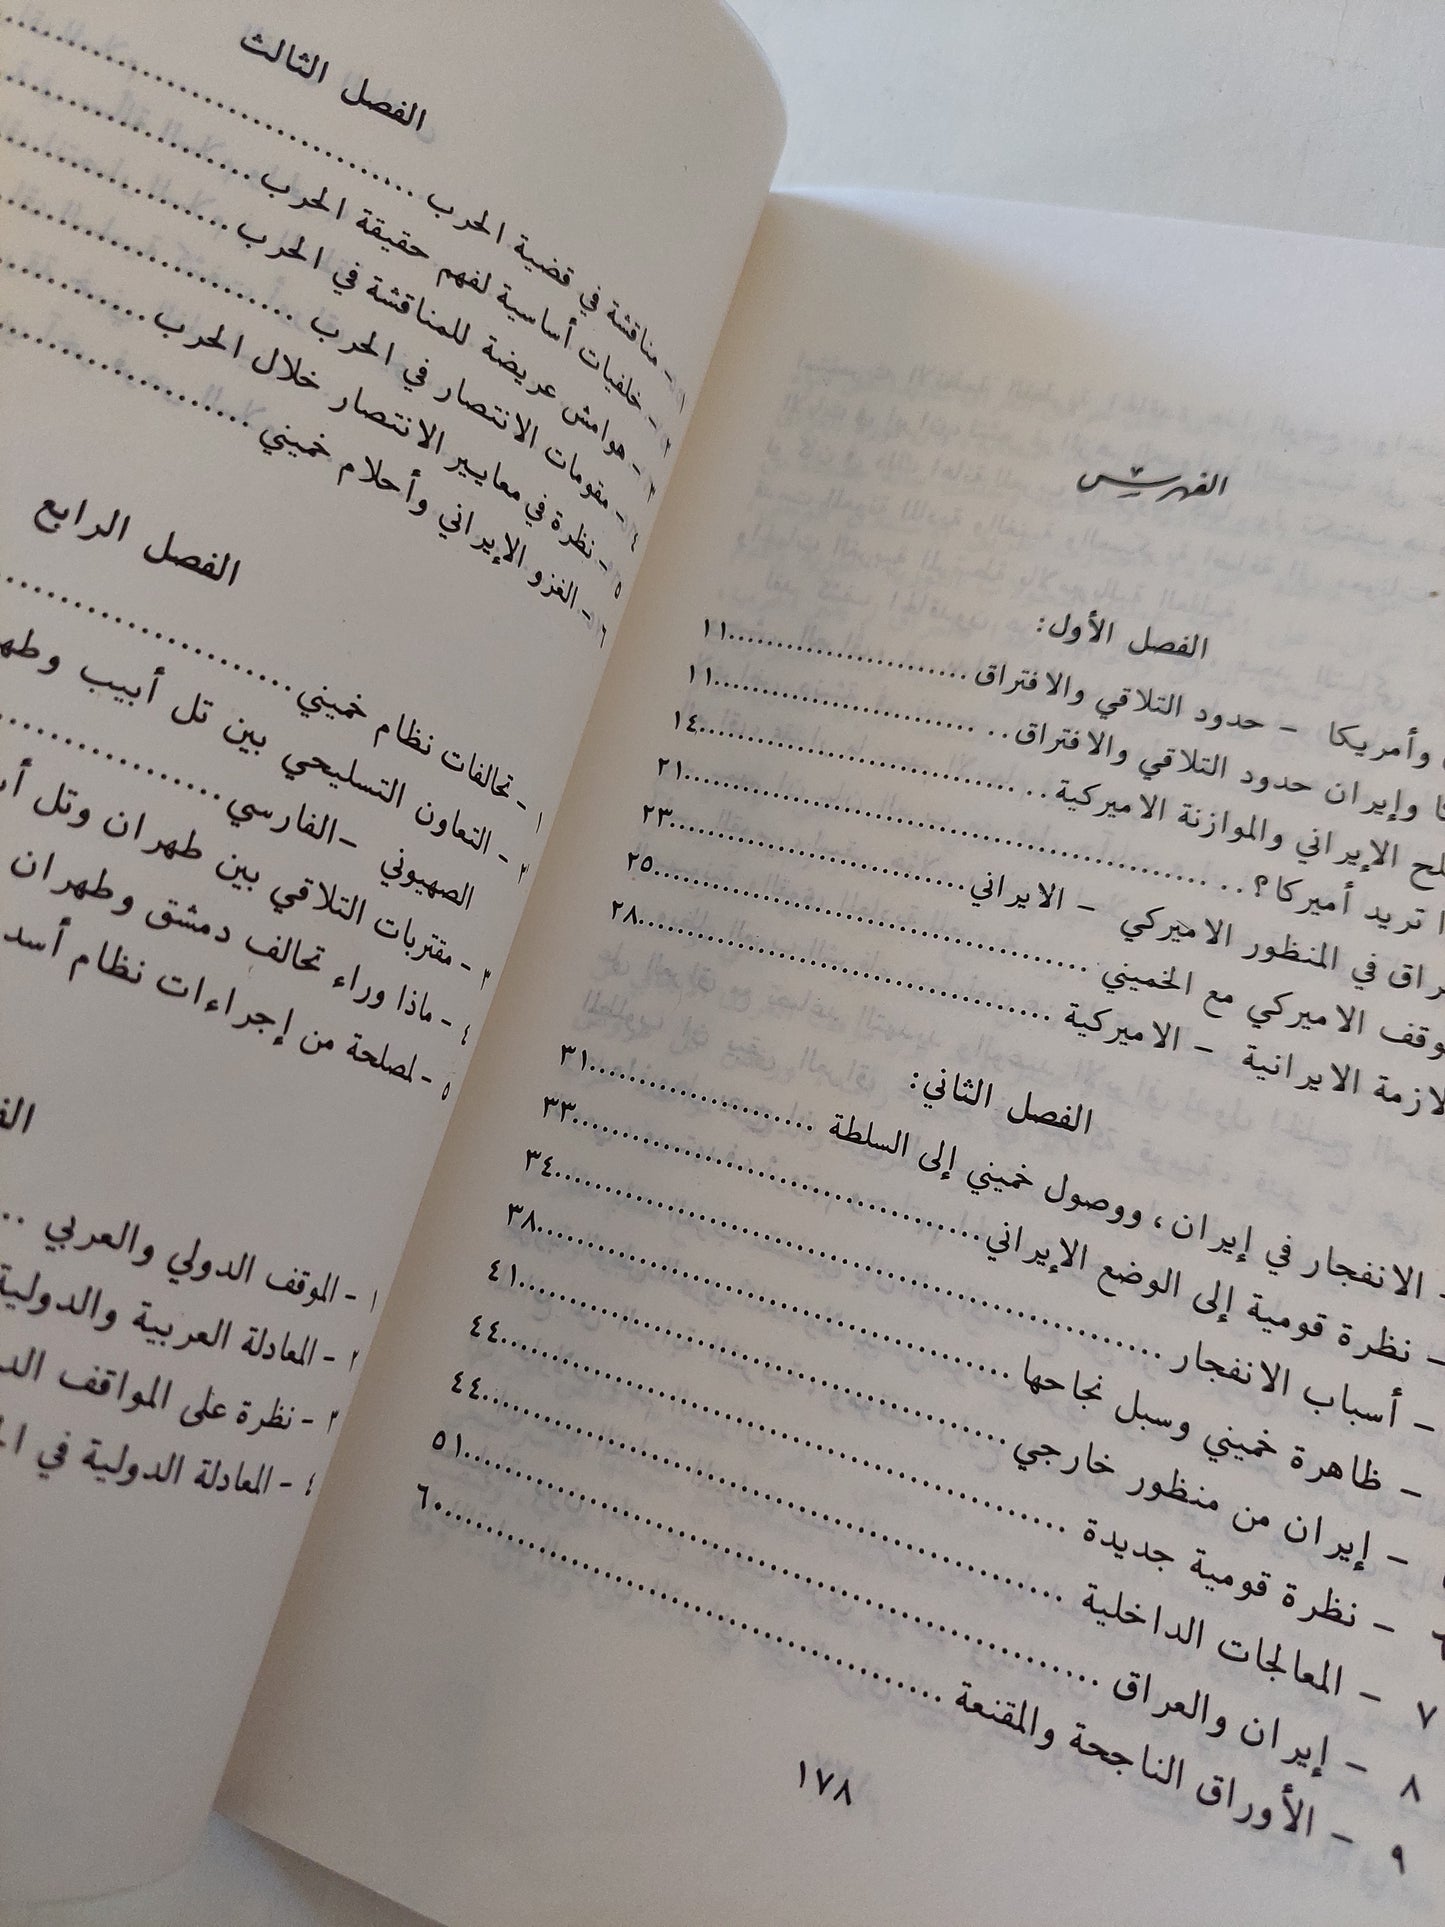 الفهرس
الفصل الأول:
وأمريكا - حدود التلاقي والافتراق ........ ١١
وإيران حدود التلاقي والافتراق ........ ١١
الإيراني والموازنة الاميركية ........ ١٤
تريد أميركا؟ ........ ٢١
في المنظور الاميركي - الايراني ........ ٢٣
الاميركي مع الخميني ........ ٢٥
الايرانية - الاميركية ........ ٢٨
الفصل الثاني:
- الانفجار في إيران، ووصول خميني إلى السلطة ........ ٣١
- نظرة قومية إلى الوضع الإيراني ........ ٣٣
- أسباب الانفجار ........ ٣٤
- ظاهرة خميني وسبل نجاحها ........ ٣٨
- إيران من منظور خارجي ........ ٤١
٦ - نظرة قومية جديدة ........ ٤٤
٧ - المعالجات الداخلية ........ ٤٤
٨ - إيران والعراق ........ ٥١
٩ - الأوراق الناجحة والمقنعة ........ ٦٠
١٧٨
الفصل الثالث
١ - مناقشة في قضية الحرب ........
٢ - خلفيات أساسية لفهم حقيقة الحرب ........
٣ - هوامش عريضة للمناقشة في الحرب ........
٤ - مقومات الانتصار في الحرب ........
٥ - نظرة في معايير الانتصار خلال الحرب ........
٦ - الغزو الإيراني وأحلام خميني ........
الفصل الرابع
١ - تحالفات نظام خميني ........
٢ - التعاون التسليحي بين تل أبيب
الصهيوني - الفارسي ........
٣ - مقتربات التلاقي بين طهران وتل
٤ - ماذا وراء تحالف دمشق وطهران
٥ - لمصلحة من إجراءات نظام أسد
١ - الموقف الدولي والعربي ..
٢ - المعادلة العربية والدولية
٣ - نظرة على المواقف
٤ - المعادلة الدولية في